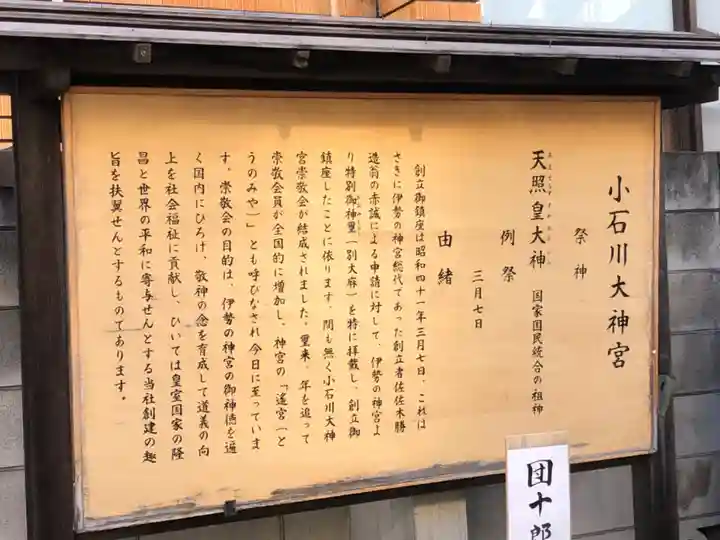 小石川大神宮
祭神
天照皇大神 国家国民統合の祖神
例祭
三月七日
由緒
創立御鎮座は昭和四十一年三月七日、これは
さきに伊勢の神宮総代であった創立者佐佐木勝
造翁の赤誠による申請に対して、伊勢の神宮よ
り特別御神璽(別大麻)を特に拝戴し、創立御
鎮座したことに依ります。間も無く小石川大神
宮崇敬会が結成されました。爾来、年を追って
崇敬会員が全国的に増加し、神宮の「遙宮(と
うのみや)」とも呼びなされ今日に至っていま
す。崇敬会の目的は、伊勢の神宮の御神徳を遍
く国内にひろげ、敬神の念を育成して道義の向
上を社会福祉に貢献し、ひいては皇室国家の隆
昌と世界の平和に寄与せんとする当社創建の趣
旨を扶翼せんとするものであります。
団十郎